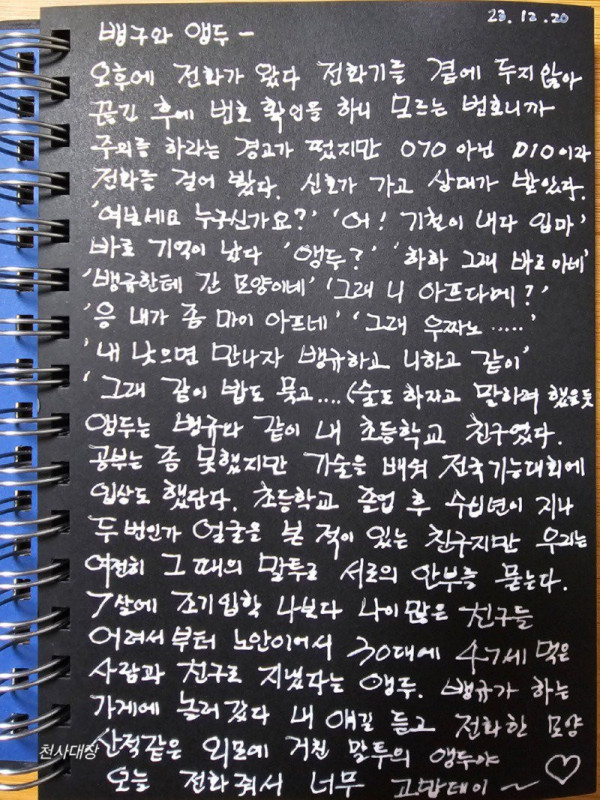 23. 12. 20
뱅규와 앵두 -
오후에 전화가 왔다 전화기를 곁에 두지 않아
끊긴 후에 번호 확인을 하니 모르는 번호니까
주의를 하라는 경고가 떴지만 070 아닌 010이라
전화를 걸어 봤다. 신호가 가고 상대가 받았다.
'여보세요 누구신가요?' '어! 기철이 내다 임마'
바로 기억이 났다 '앵두?' '하하 그래 바로 아네'
'뱅규한테 간 모양이네' '그래 니 아프다메?'
'응 내가 좀 마이 아프네' '그래 우짜노 .....'
'내 낫으면 만나자 뱅규하고 니하고 같이'
'그래 같이 밥도 묵고.... (술도 하자고 말하려 했을듯
앵두는 뱅규와 같이 내 초등학교 친구였다.
공부는 좀 못했지만 기술을 배워 전국기능대회에
입상도 했단다. 초등학교 졸업 후 수십년이 지나
두번인가 얼굴을 본 적이 있는 친구지만 우리는
여전히 그때의 말투로 서로의 안부를 묻는다.
7살에 조기입학 나보다 나이많은 친구들
어려서부터 노안이어서 30대에 47세 먹은
사람과 친구로 지냈다는 앵두. 뱅규가 하는
가게에 놀러갔다 내 얘길 듣고 전화한 모양
산적같은 외모에 거친 말투의 앵두야
오늘 전화줘서 너무 고맙데이 ~ ♡
천사대장